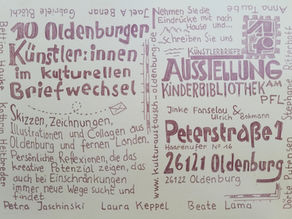 Anna Taube
Gabriele Blüch
Joel A Benar
Bettina Hauke
Kathrin Haltebeke
10 Oldenburger
Künstler:innen
im kulturellen
Briefwechsel
Skizzen, Zeichnungen,
Illustrationen und Collagen aus
Oldenburg und fernen Landen.
Persönliche Reflexionen, die das
kreative Potenzial zeigen, das
auch bei Einschränkungen
immer neue Wege sucht und
findet
www.kulturaustausch-oldenburg.de
Nehmen Sie die
Eindrücke mit nach
Hause und...
Schreiben
KÜNSTLERBRIEFE
AUSSTELLUNG
KINDERBIBLIOTHEK AM
PFL
Imke Fanselau &
Ulrich Bohmann
Peterstraße 1
Haareneufer No 16
26121 Oldenburg
26122 Oldenburg
Dörte Putensen
Petra Jaschinski Laura Keppel Beate Lama